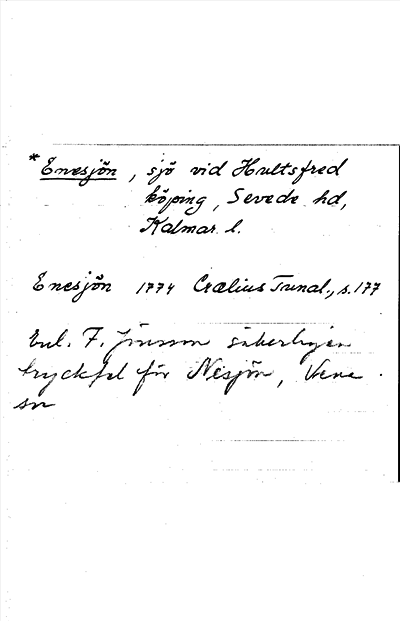 *Enesjön, sjö vid Hultsfred
köping, Sevede hd,
Kalmar l.
Enesjön 1774 Crælius Tunal., s. 177
Enl. F. Jönsson säkerligen
tryckfel för Nesjön, Vena
sn